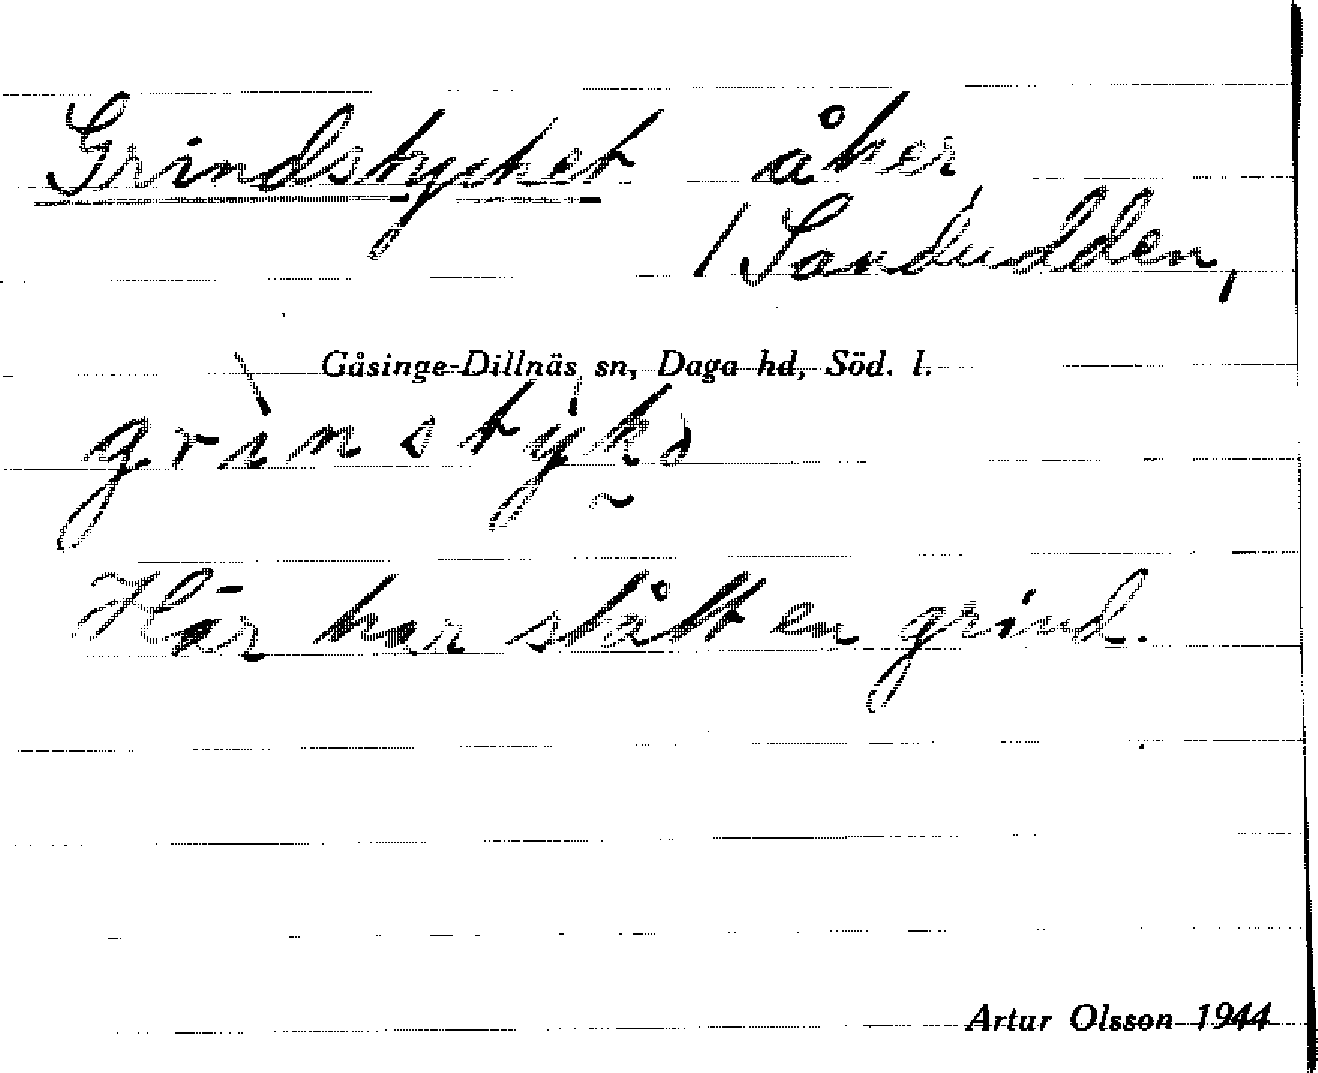 Grindstycket åker
/Sandudden,
Gåsinge-Dillnäs sn, Daga hd, Söd. l.
grìnstýkə
Här har stått en grind.
Artur Olsson 1944